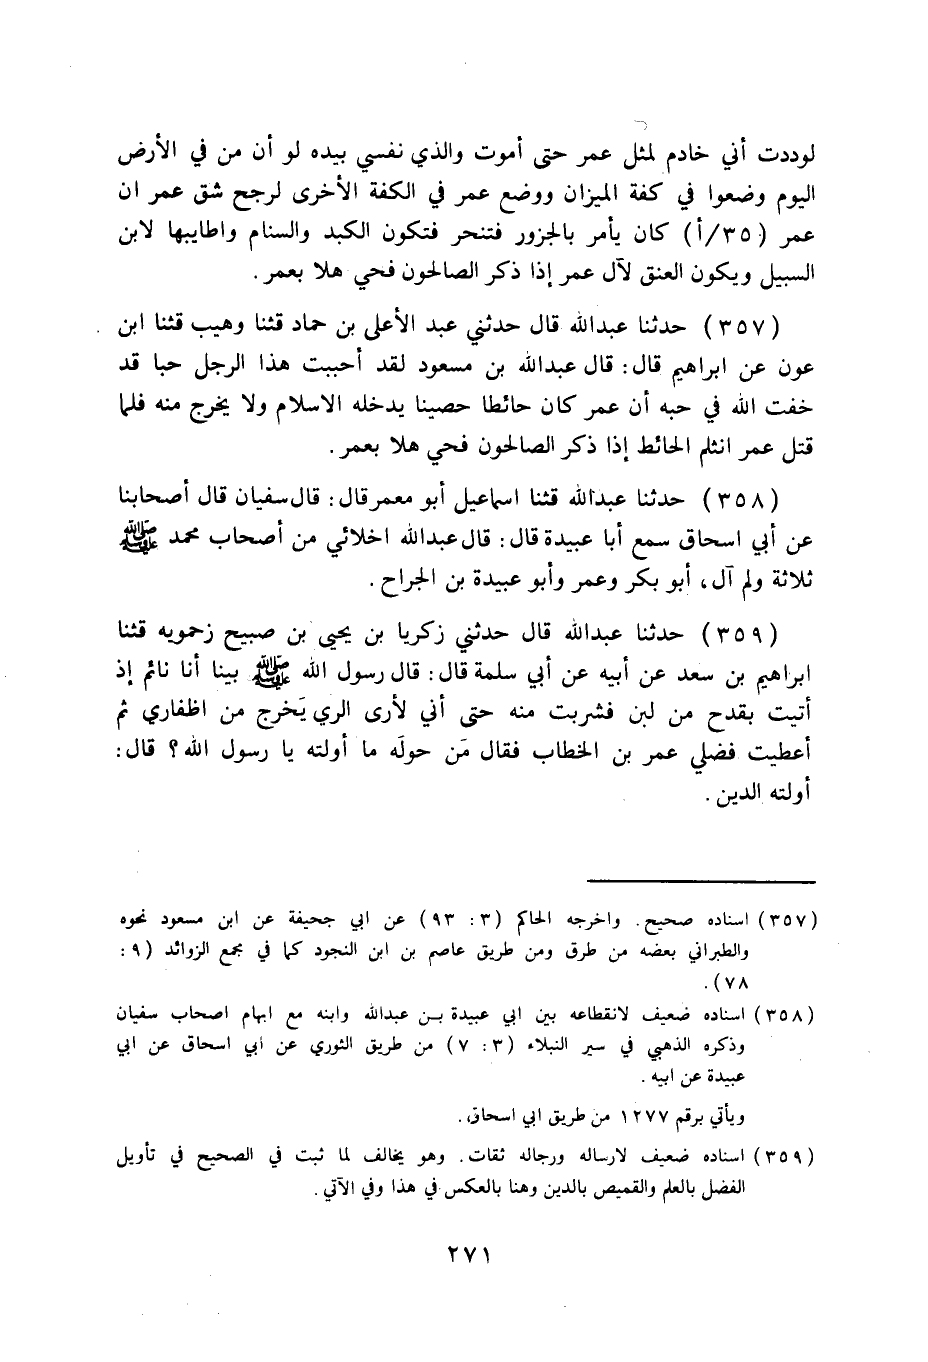 لوددت أني خادم لمثل عمر حتى أموت والذي نفسي بيده لو أن من في الأرض
اليوم وضعوا في كفة الميزان ووضع عمر في الكفة الأخرى لرجح شق عمر ان
عمر (٣٥/أ) كان يأمر بالجزور فتنحر فتكون الكبد والسنام واطايبها لابن
السبيل ويكون العنق لآل عمر إذا ذكر الصالحون فحي هلا بعمر.
(٣٥٧) حدثنا عبدالله قال حدثني عبد الأعلى بن حماد قثنا وهيب قثنا ابن
عون عن ابراهيم قال: قال عبدالله بن مسعود لقد أحببت هذا الرجل حبا قد
خفت الله في حبه أن عمر كان حائطا حصينا يدخله الاسلام ولا يخرج منه فلما
قتل عمر انثلم الحائط إذا ذكر الصالحون فحي هلا بعمر.
(٣٥٨) حدثنا عبدالله قثنا اسماعيل أبو معمر قال: قال سفيان قال أصحابنا
عن أبي اسحاق سمع أبا عبيدة قال: قال عبدالله اخلائي من أصحاب محمد ﷺ
ثلاثة ولم آل، أبو بكر وعمر وأبو عبيدة بن الجراح.
(٣٥٩) حدثنا عبدالله قال حدثني زكريا بن يحيى بن صبيح زحمويه قثنا
ابراهيم بن سعد عن أبيه عن أبي سلمة قال: قال رسول الله ﷺ بينا أنا نائم إذ
أتيت بقدح من لبن فشربت منه حتى أني لأرى الري يَخرج من اظفاري ثم
أعطيت فضلي عمر بن الخطاب فقال مَن حولَه ما أولته يا رسول الله؟ قال:
أولته الدين.
(٣٥٧) اسناده صحيح. واخرجه الحاكم (٣: ٩٣) عن ابي جحيفة عن ابن مسعود نحوه
والطبراني بعضه من طرق ومن طريق عاصم بن ابن النجود كما في مجمع الزوائد (٩:
٧٨).
(٣٥٨) اسناده ضعيف لانقطاعه بين ابي عبيدة بـن عبدالله وابنه مع ابهام اصحاب سفيان
وذكره الذهبي في سير النبلاء (٣: ٧) من طريق الثوري عن ابي اسحاق عن ابي
عبيدة عن ابيه.
ويأتي برقم ١٢٧٧ من طريق ابي اسحاق.
(٣٥٩) اسناده ضعيف لارساله ورجاله ثقات. وهو يخالف لما ثبت في الصحيح في تأويل
الفضل بالعلم والقميص بالدين وهنا بالعكس في هذا وفي الآتي.
٢٧١